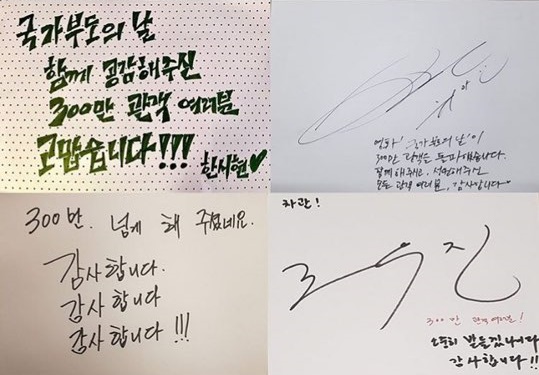 국가부도의 날
함께 공감해주신
300만 관객 여러분
고맙습니다!!!
한시현♥
영화 '국가부도의 날'이
300만 관객을 돌파했습니다.
함께 해주시고,
모든 관객 여러분, 감사합니다♡
300만. 넘게 해 주셨네요.
감사합니다.
감사합니다
감사합니다!!!
차관!
조우진
300만 관객 여러분!
감사합니다!